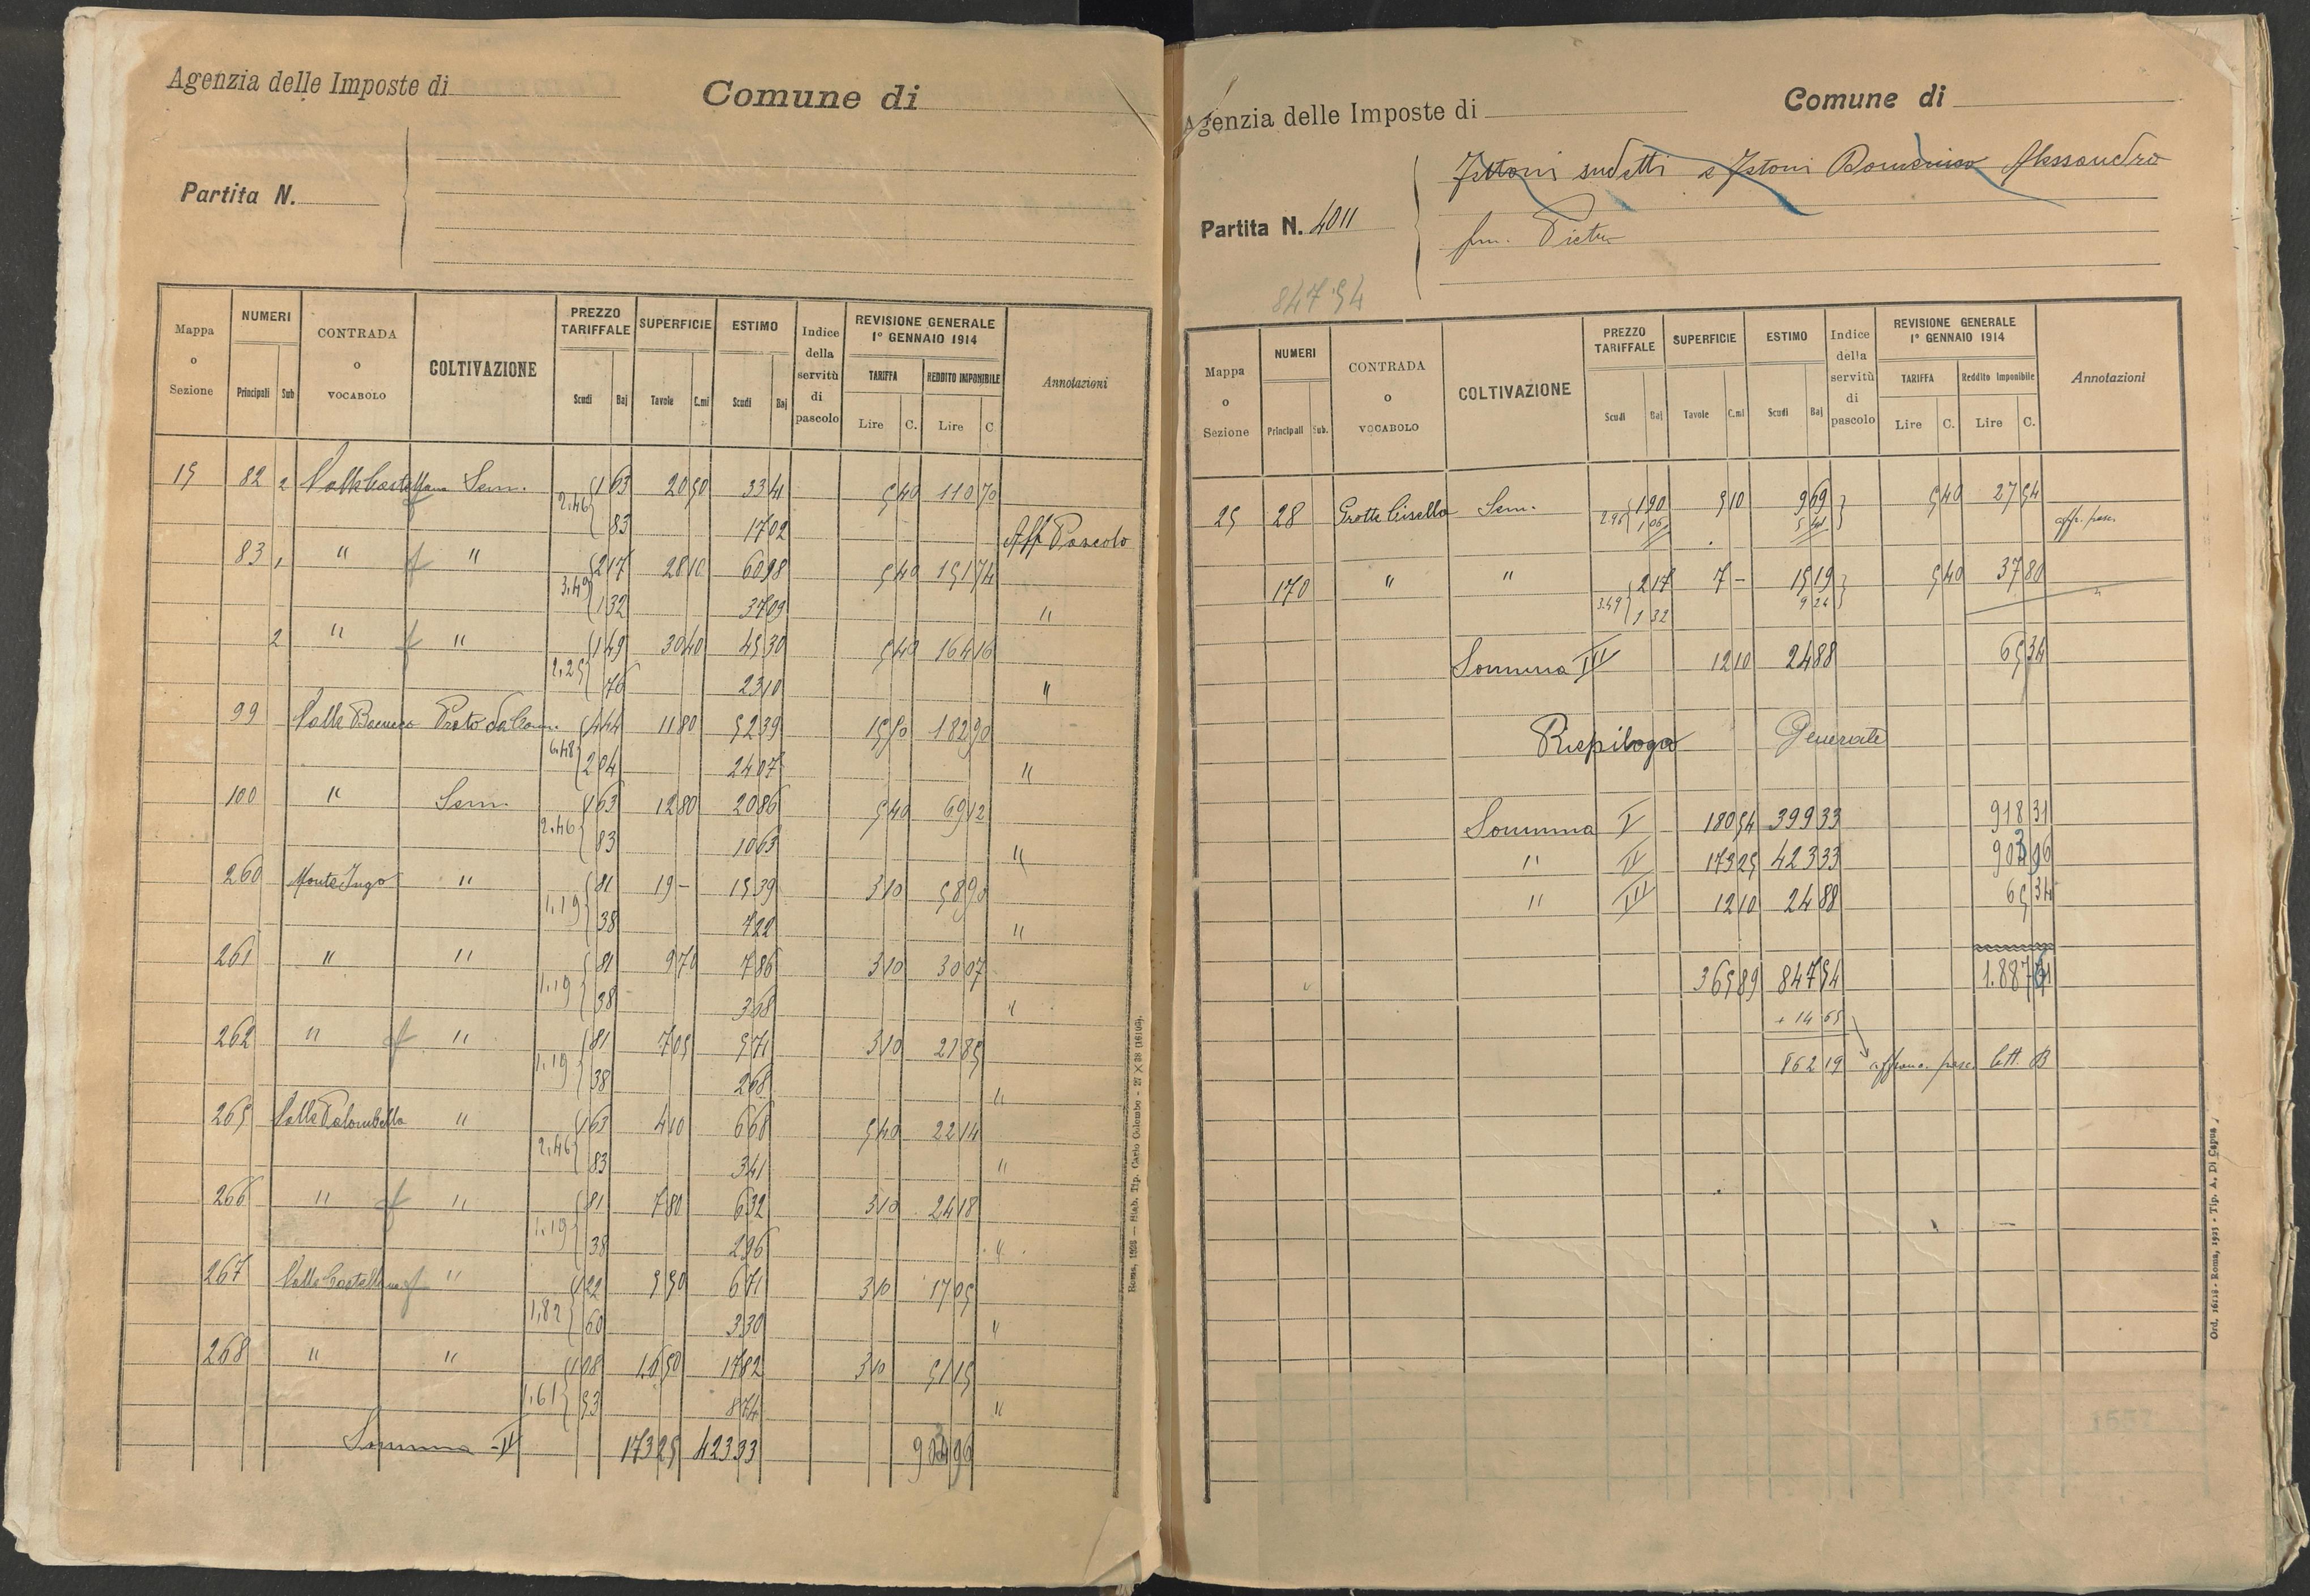 Agenzia delle Imposte di
Comune di
Partita N.
Mappa o Sezione
NUMERI
Principali Sub
CONTRADA o VOCABOLO
COLTIVAZIONE
PREZZO TARIFFALE
Scudi Baj
SUPERFICIE
Tavole C.mi
ESTIMO
Scudi Baj
Indice della servitù di pascolo
REVISIONE GENERALE 1° GENNAIO 1914
TARIFFA
Lire C.
REDDITO IMPONIBILE
Lire C
Annotazioni
15 82 2 Valle Castellana Sem. 1 63 20 50 33 41 5 40 110 70
2,46 83 17 02 Aff Pascolo
83 1 " " 2 17 28 10 60 98 5 40 151 74
3.49 1 32 37 09 "
2 " " 1 49 30 40 45 30 5 40 164 16
2,25 76 23 10 "
99 Prato 4 44 11 80 52 39 15 50 182 90
6.48 2 04 24 07 "
100 " Sem. 1 63 12 80 20 86 5 40 69 12
2.46 83 10 63 "
260 Monte Jugo " 81 19 – 15 39 3 10 58 90
1,19 38 7 22 "
261 " " 81 9 70 7 86 3 10 30 07
1.19 38 3 68 "
262 " " 81 7 05 5 71 3 10 21 85
1,19 38 2 68 "
265 Valle Palombella " 1 63 4 10 6 68 5 40 22 14
2,46 83 3 41 "
266 " " 81 7 80 6 32 3 10 24 18
1.19 38 2 96 "
267 Valle Castellana " 1 22 5 50 6 71 3 10 17 05
1,82 60 3 30 "
268 " " 1 08 16 50 17 82 3 10 51 15
1,61 53 8 74 "
Somma IV 173 25 423 33 903 96
Roma, 1908 — Stab. Tip. Carlo Colombo - 27 × 38 (16105).
Agenzia delle Imposte di
Comune di
Partita N. 4011
sudetti e Domenico Alessandro
fu. Pietro
847 54
Mappa o Sezione
NUMERI
Principali Sub.
CONTRADA o VOCABOLO
COLTIVAZIONE
PREZZO TARIFFALE
Scudi Baj
SUPERFICIE
Tavole C.mi
ESTIMO
Scudi Baj
Indice della servitù di pascolo
REVISIONE GENERALE 1° GENNAIO 1914
TARIFFA
Lire C.
Reddito Imponibile
Lire C.
Annotazioni
25 28 Grotte Cisella Sem. 1 90 5 10 9 69 5 40 27 54
2.96 1 06 5 41 aff. pasc.
170 " " 2 17 7 – 15 19 5 40 37 80
3.49 1 32 9 24 "
Somma III 12 10 24 88 65 34
Riepilogo Generale
Somma V 180 54 399 33 918 31
" IV 173 25 423 33 903 96
" III 12 10 24 88 65 34
365 89 847 54 1.887 61
+ 14 65
862 19 affranc. pasc. lett. B
Ord. 16118 - Roma, 1925 - Tip. A. Di Capua
1557